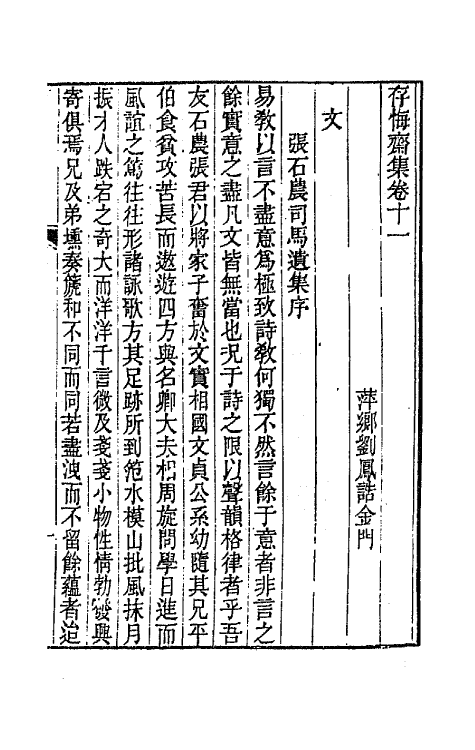 存悔齋集卷十一
萍鄉劉鳳誥金門
文
張石農司馬遺集序
易敎以言不盡意爲極致詩敎何獨不然言餘于意者非言之
餘實意之盡凡文皆無當也况于詩之限以聲韻格律者乎吾
友石農張君以將家子奮於文實相國文貞公系幼隨其兄平
伯食貧攻苦長而遨遊四方與名卿大夫相周旋問學日進而
風誼之篤往往形諸詠歌方其足跡所到笵水模山批風抹月
振才人跌宕之奇大而洋洋千言微及戔戔小物性情勃發興
寄俱焉兄及弟壎奏篪和不同而同若盡洩而不留餘蘊者迨
一